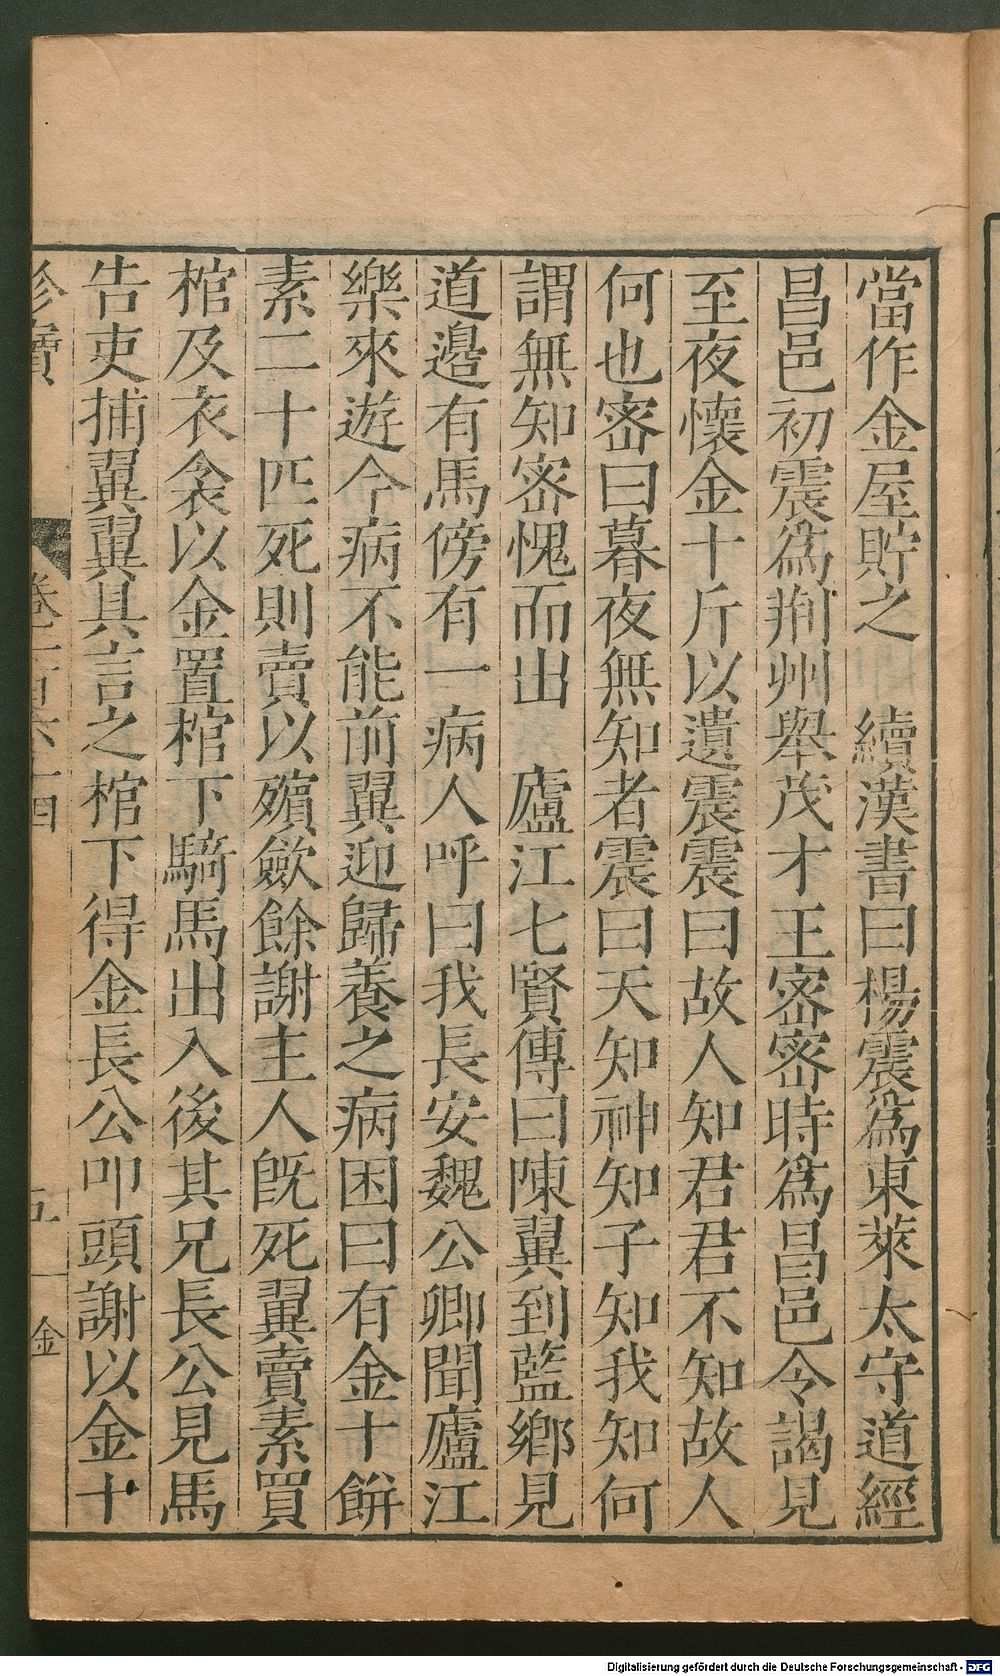 當作金屋貯之　續漢書曰楊震爲東萊太守道經
昌邑初震爲荆州舉茂才王宻宻時爲昌邑令謁見
至夜懷金十斤以遺震震曰故人知君君不知故人
何也宻曰暮夜無知者震曰天知神知子知我知何
謂無知宻愧而出　廬江七賢傳曰陳翼到藍鄉見
道邉有馬傍有一病人呼曰我長安魏公卿聞廬江
樂來遊今病不能前翼迎歸養之病困曰有金十餅
素二十匹死則賣以殯歛餘謝主人旣死翼賣素買
棺及衣衾以金置棺下騎馬出入後其兄長公見馬
告吏捕翼翼具言之棺下得金長公叩頭謝以金十
珍寶　卷三百六十四　五　金
Digitalisierung gefördert durch die Deutsche Forschungsgemeinschaft - DFG